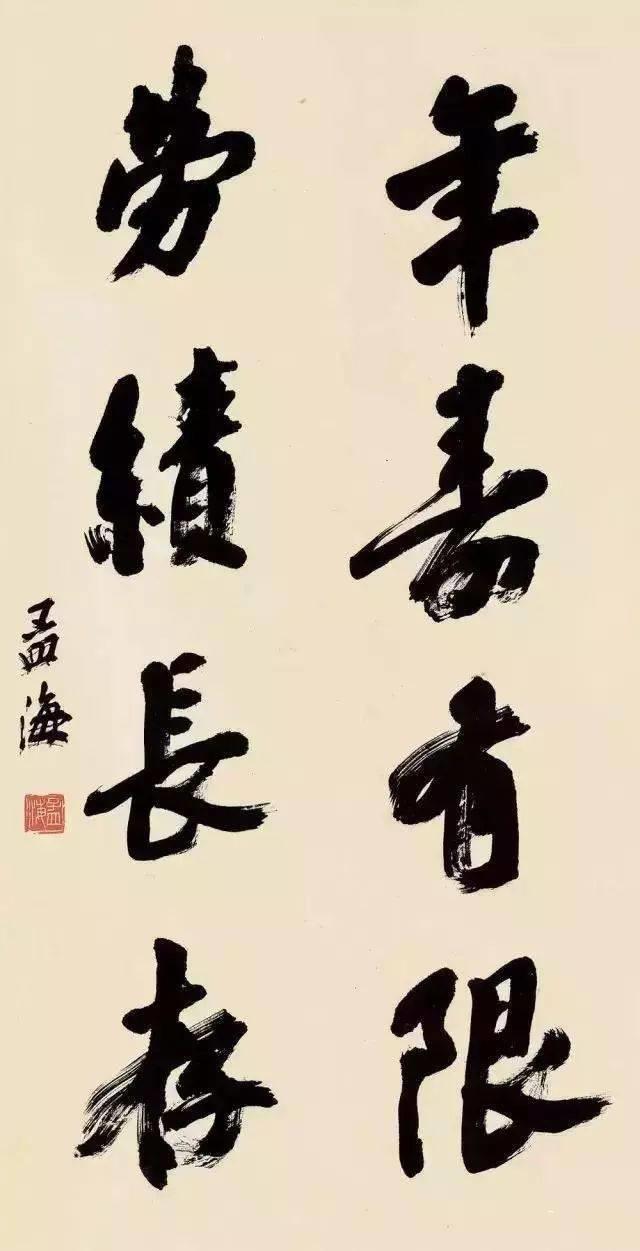 年壽有限
勞績長存
孟海
孟海